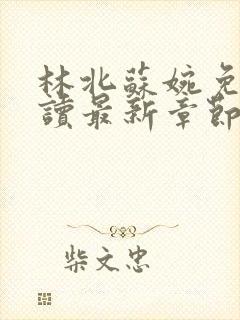 林北蘇婉免
讀最新章節
柴文忠